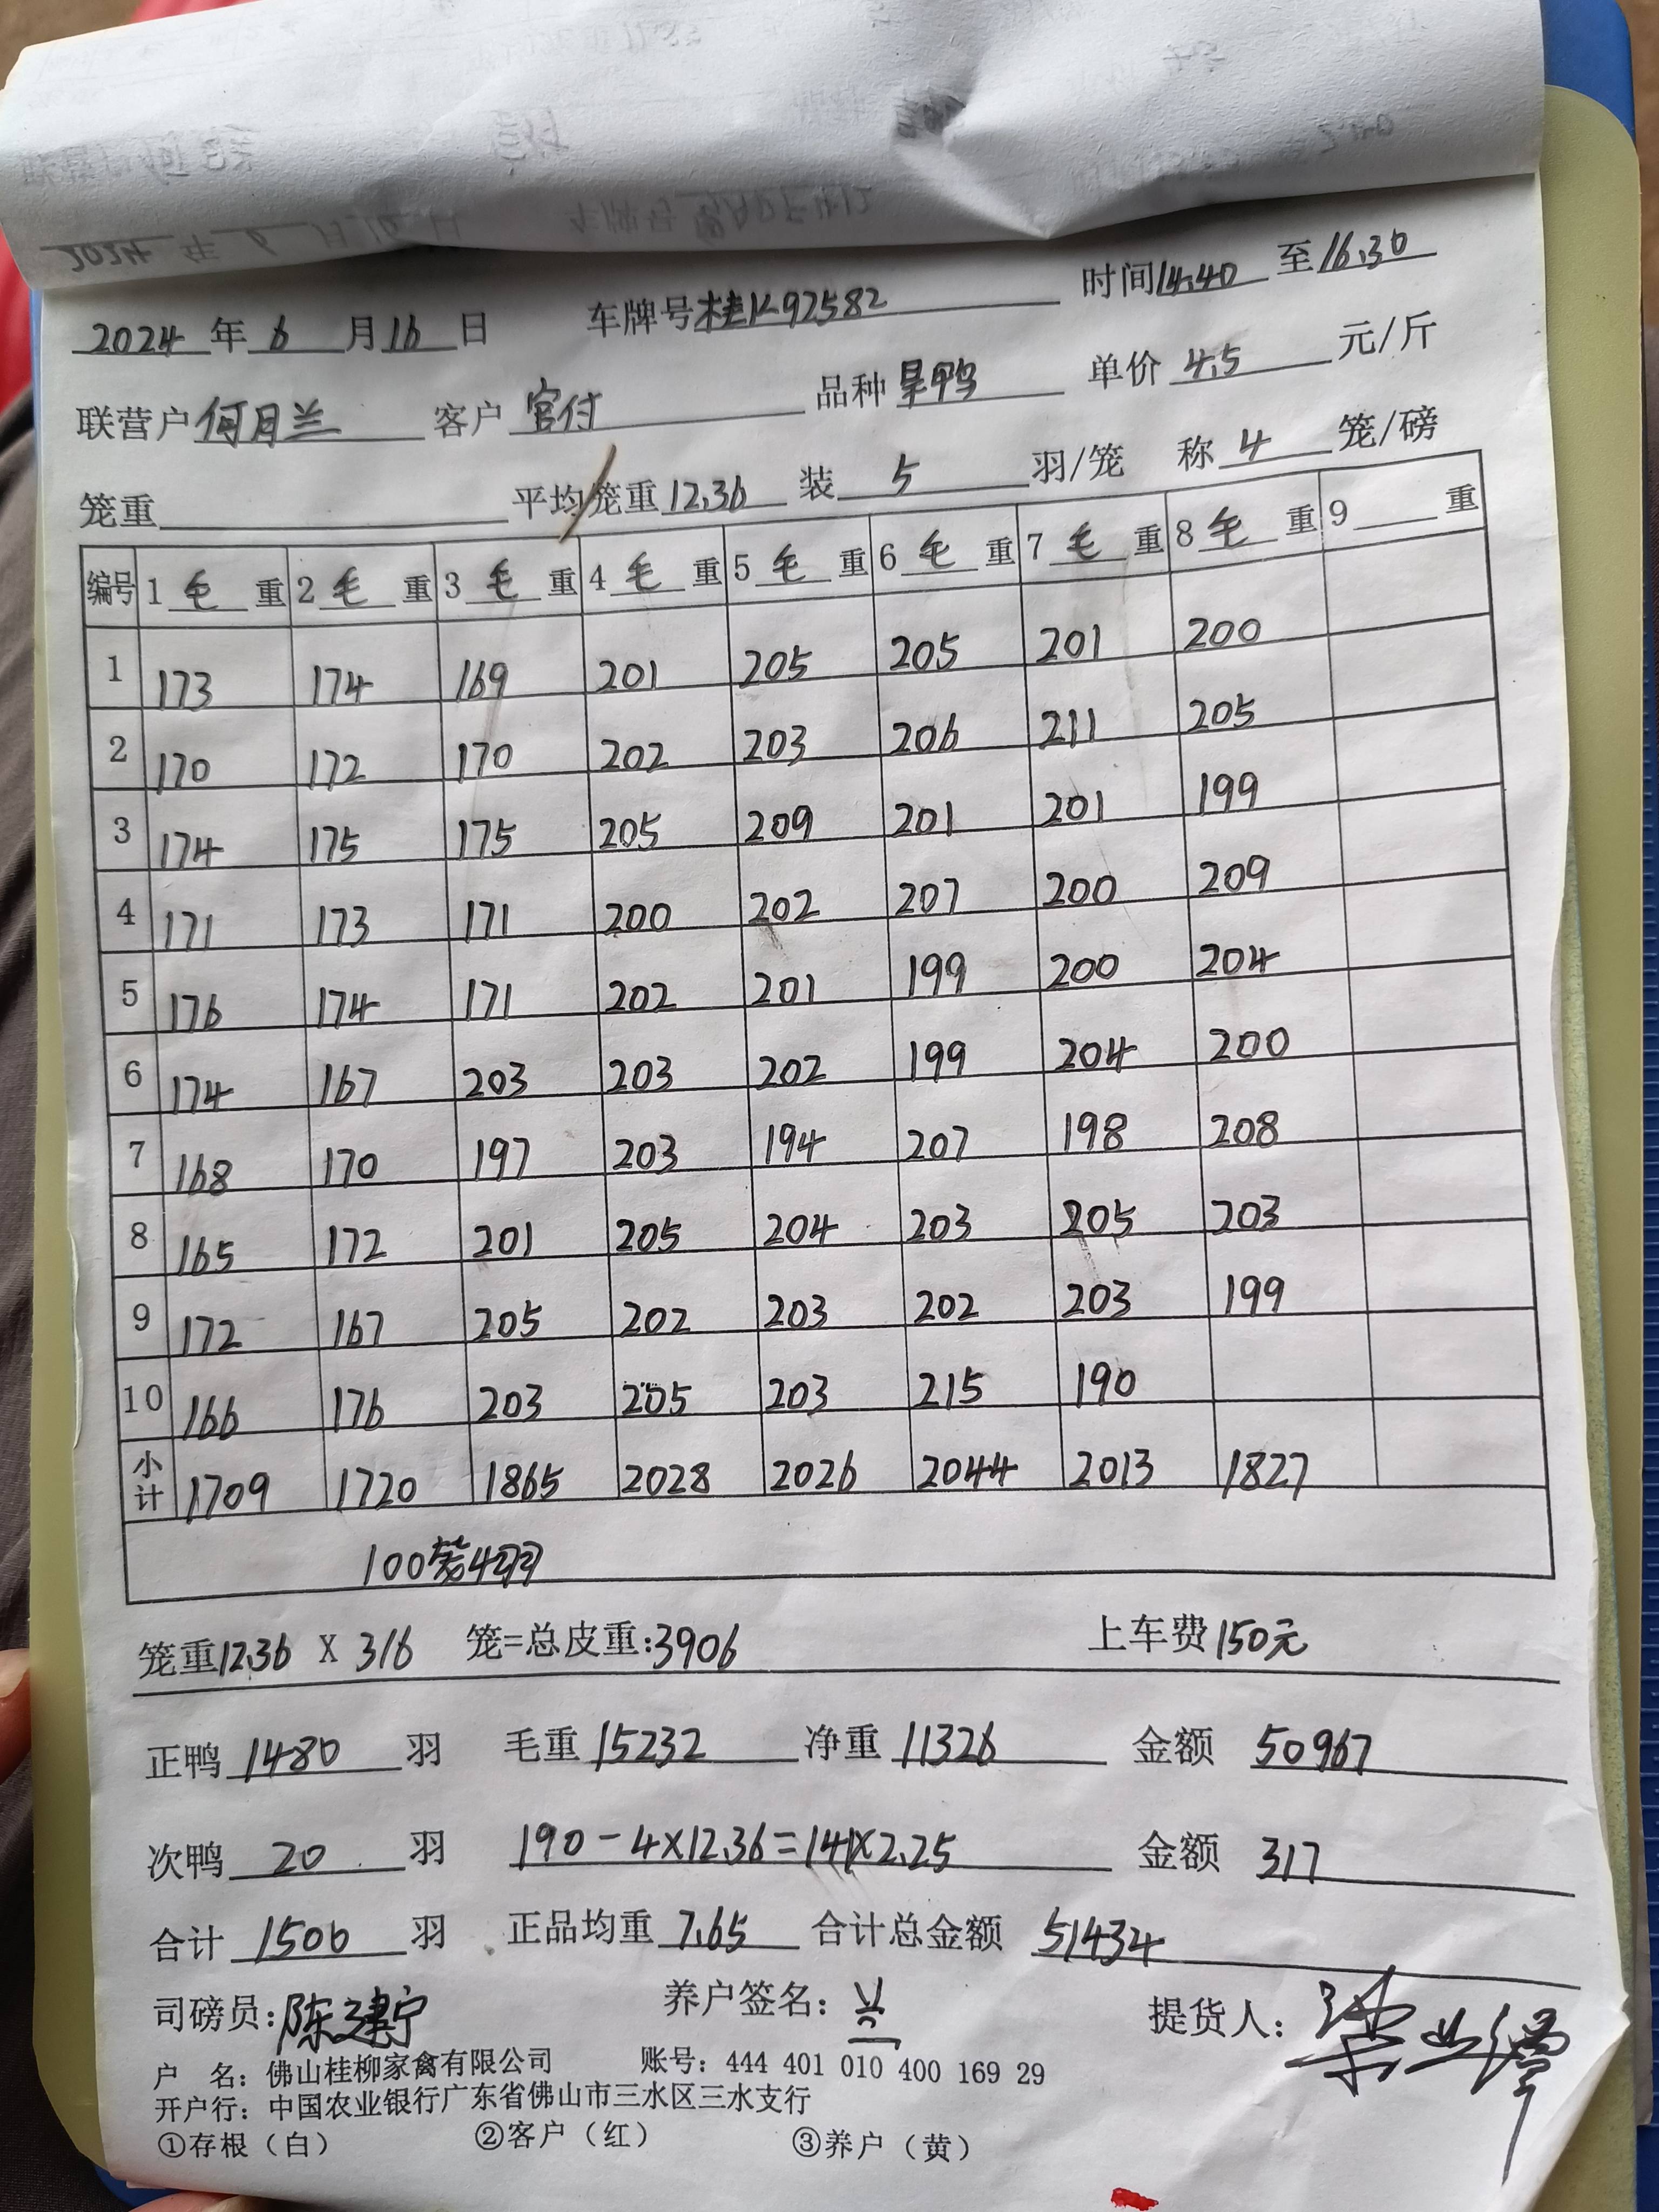 2024 年 6 月 16 日 车牌号 桂K92582 时间 14.40 至 16.30
联营户 何月兰 客户 官付 品种 旱鸭 单价 4.5 元/斤
笼重 平均笼重 12.36 装 5 羽/笼 称 4 笼/磅
编号 1 毛 重 2 毛 重 3 毛 重 4 毛 重 5 毛 重 6 毛 重 7 毛 重 8 毛 重 9 重
1 173 174 169 201 205 205 201 200
2 170 172 170 202 203 206 211 205
3 174 175 175 205 209 201 201 199
4 171 173 171 200 202 207 200 209
5 176 174 171 202 201 199 200 204
6 174 167 203 203 202 199 204 200
7 168 170 197 203 194 207 198 208
8 165 172 201 205 204 203 205 203
9 172 167 205 202 203 202 203 199
10 166 176 203 205 203 215 190
小计 1709 1720 1865 2028 2026 2044 2013 1827
100笼4羽
笼重 12.36 X 316 笼=总皮重:3906 上车费 150元
正鸭 1480 羽 毛重 15232 净重 11326 金额 50967
次鸭 20 羽 190-4×12.36=141×2.25 金额 317
合计 1500 羽 正品均重 7.65 合计总金额 51434
司磅员:陈建宁 养户签名: 兰 提货人:
户 名:佛山桂柳家禽有限公司 账号:444 401 010 400 169 29
开户行:中国农业银行广东省佛山市三水区三水支行
①存根(白) ②客户(红) ③养户(黄)